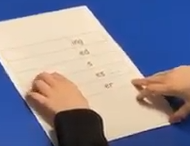 ing
ed
s
es
er